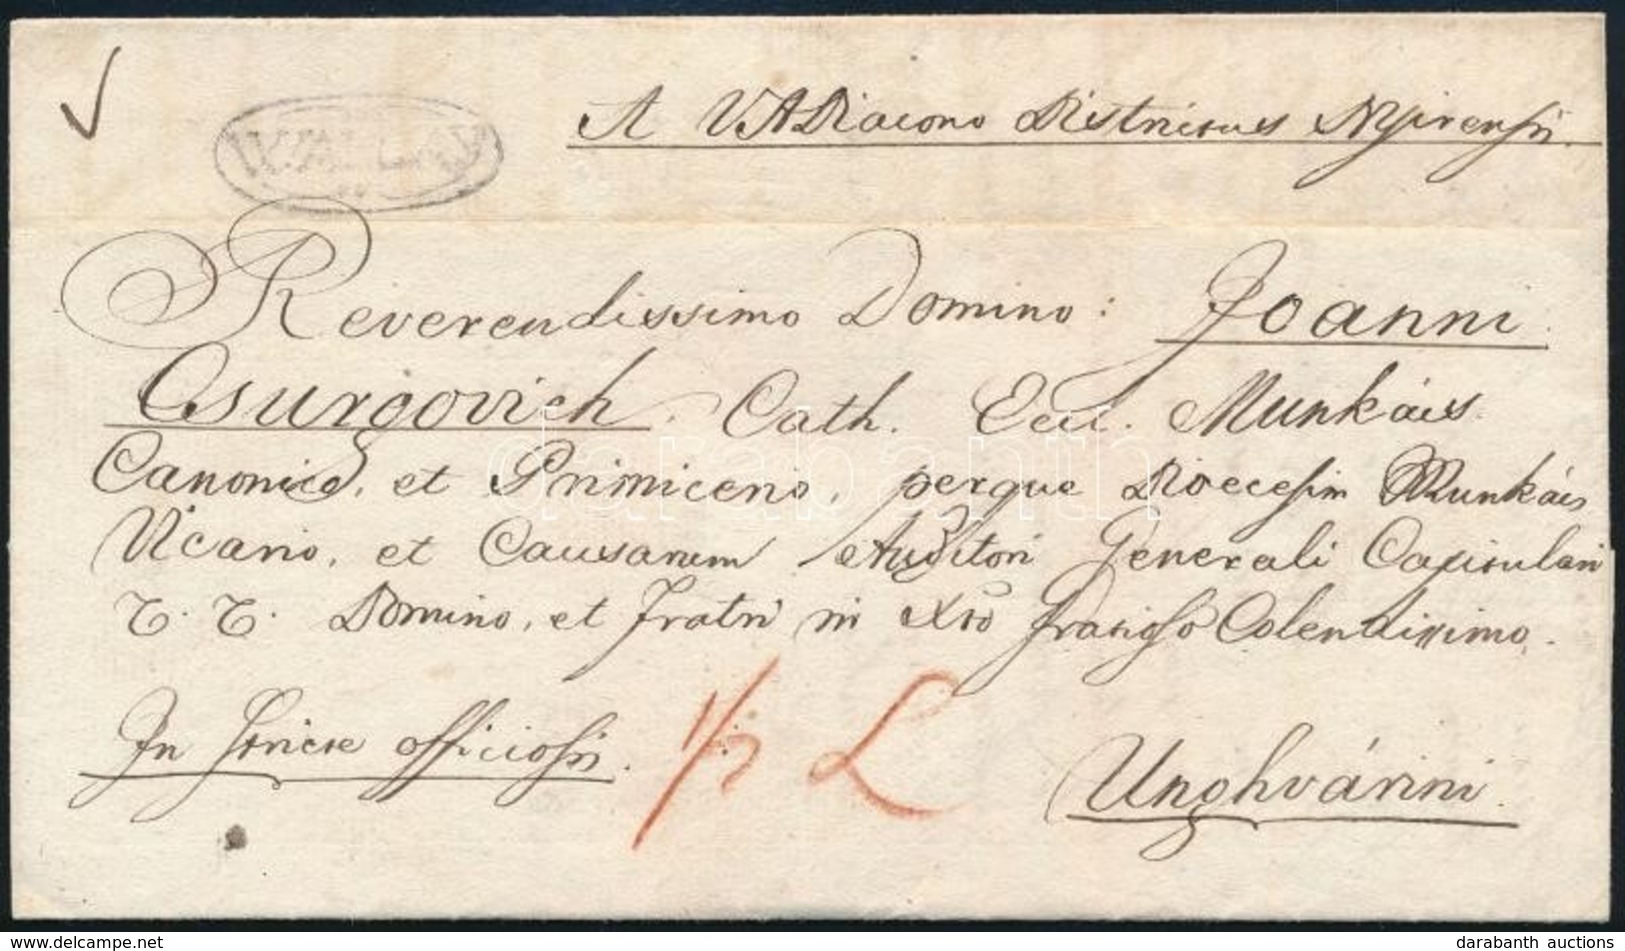 W.ALLAY
A VADiacono Districtus Nyirensis.
Reverendissimo Domino: Joanni
Csurgovich. Cath. Eccl. Munkács.
Canonico, et Primicerio, perque Dioecesim Munkács
Vicario, et Causarum Auditori Generali Capitulari
T. T. Domino, et Fratri in Xto Colendissimo.
In Serie officiosis. 1/2 L
Unghvárini.
darabanth
www.delcampe.net
darabanth auctions